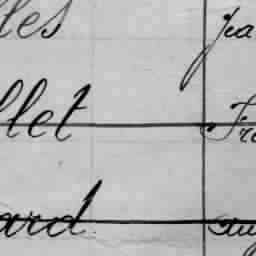 les Jea
llet Fra
ard aug